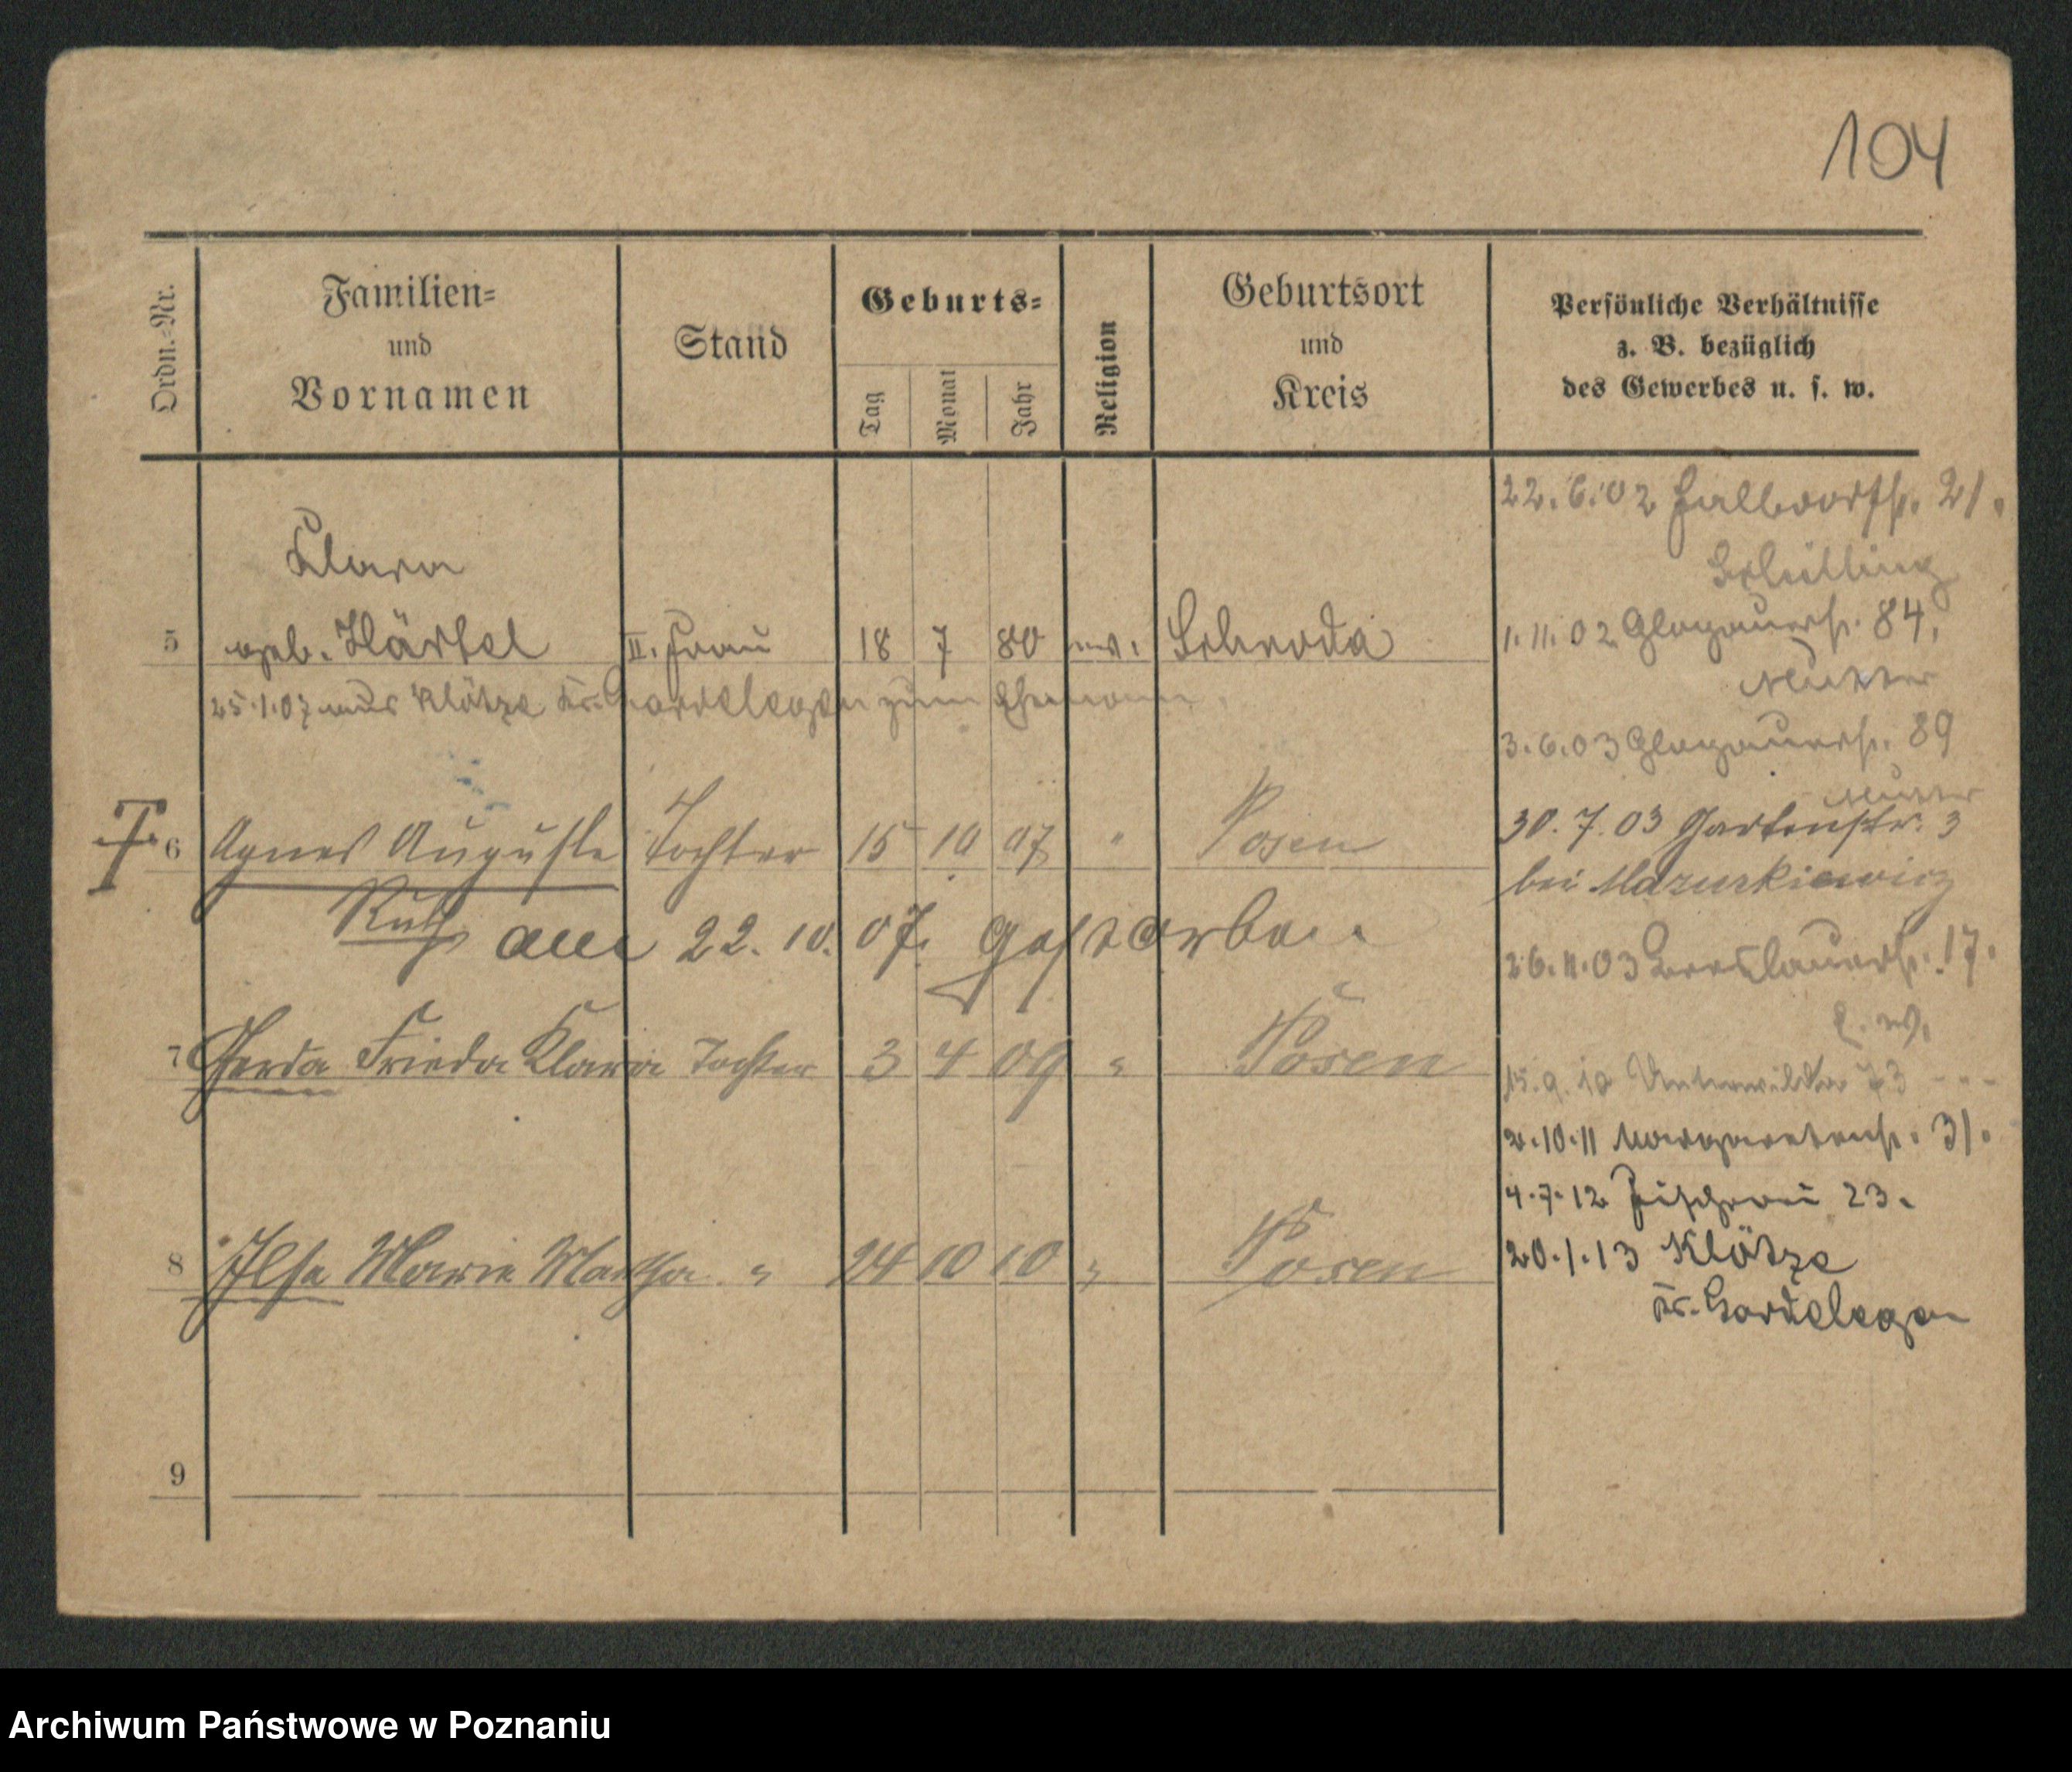 104
Ordn.=Nr.
Familien=
und
Vornamen
Stand
Geburts=
Tag
Monat
Jahr
Religion
Geburtsort
und
Kreis
Persönliche Verhältnisse
z. B. bezüglich
des Gewerbes u. s. w.
Klara
5 geb. Härtel II. Frau 18 7 80 ev. Schroda
25.1.07 aus Klötze Kr. Gardelegen zum Ehemann.
6 Agnes Auguste Tochter 15 10 07 " Posen
Ruth am 22. 10. 07. gestorben.
7 Gerda Frieda Klara Tochter 3 4 09 " Posen
8 Ilse Marie Martha " 24 10 10 " Posen
9
22.6.02 21.
Schilling
1.11.02 Glogauerstr. 84.
Mutter
3.6.03 Glogauerstr. 89
Mutter
30.7.03 Gartenstr. 3
bei Mazurkiewicz
26.11.03 Breslauerstr. 17.
E. W.
15.9.10 Unterwilda 73
2.10.11 Margaretenstr. 31.
4.7.12 Fischerei 23.
20.1.13 Klötze
Kr. Gardelegen
Archiwum Państwowe w Poznaniu